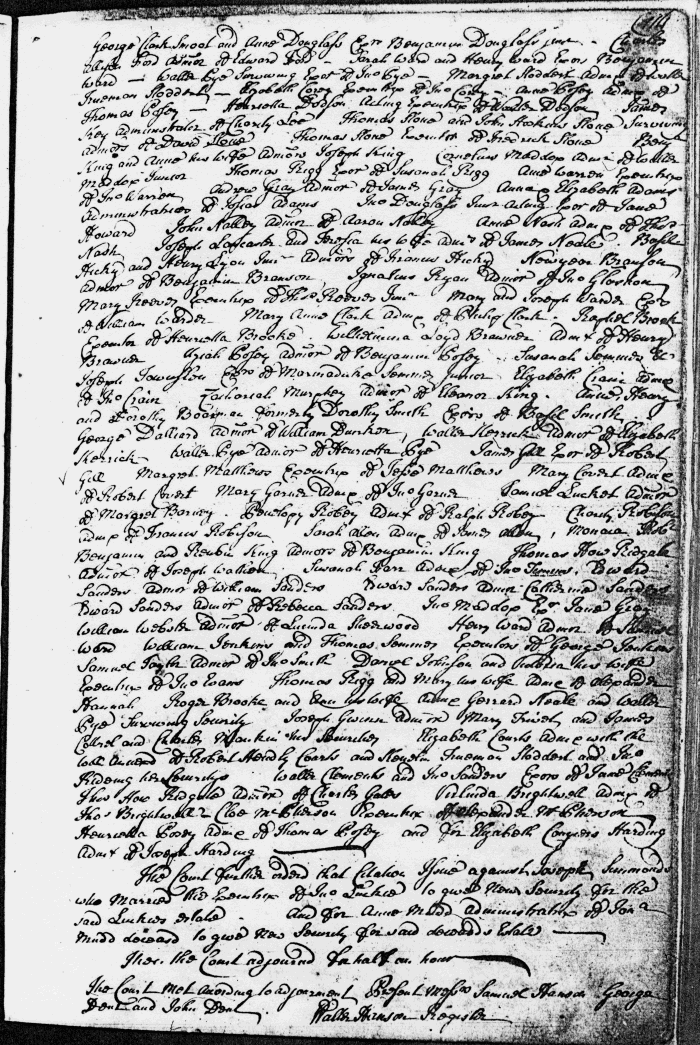 George Clark Smoot and Anne Douglass Exrs Benjamin Douglass junr - Charles
Ford Admor of Edward Ford - Sarah Ward and Henry Ward Exors Benjamin
Ward - Walter Pye Surviving Exor of Jno Pye - Margret Stoddert Admx of Walter
Trueman Stoddert - Elizabeth Corry Executrix of Jno Corry - Anne Posey Admx of
Thomas Posey - Henrietta Dodson Acting Executrix of Walter Dodson James
Key Administrator of Charity Lee Thomas Stone and John Hoskins Stone Surviving
Admors of David Stone Thomas Stone Executor of Fredrick Stone
King and Anne his wife Admors Joseph King Cornelius Maddox Admr of Walter
Maddox Junior Thomas Rigg Exor of Susanah Rigg Ann Warren Executrix
of Jno Warren Andrew Gray Admor of James Gray Anna Elizabeth Adams
Administratrix of Josias Adams Jno Douglass Junr Acting Exor of Jane
Howard John Nalley Admor of Aaron Nalley Anne Nash Admx of Thos
Nash Joseph Lancaster and Teresia his wife Admrs of James Neale Basil
Hicky and Henry Lyon Junr Admors of Francis Hicky Newyear Branson
Admor of Benjamin Branson Ignatius Ryan Admor of Jno Glaskon
Mary Reeves Executrix of Thos Reeves Junr Mary and Joseph Warder Exors
of William Warder Mary Anne Clark Admx of Philip Clark Raphel Brooke
Executor of Henrietta Brooke Wilhelmina Loyd Brawner Admx of Henry
Brawner Uriah Posey Admor of Benjamin Posey Susanah Semmes &
Joseph Townslow Exors of Marmaduke Semmes Junior Elizabeth Crain Admx
of Jno Crain Zachariah Murphey Admor of Eleanor King. Anne Heary
and Dorothy Boarman formerly Dorothy Smith Exors of Basil Smith
George Dalliard Admor of William Dunkon, Walter Merrick Admor of Elizabeth
Merrick Walter Pye Admor of Henrietta Pye James Gill Exor of Robert
Gill Margret Matthews Executrix of Jesse Matthews Mary Covert Admx
of Robert Covert Mary Garner Admx of Jno Garner Samuel Luckett Admor
of Margret Barney Penelopy Robey Admx of Ralph Robey Charity Robison
Admx of Francis Robison Sarah Allen Admx of James Allen, Monica
Benjamin and Reubin King Admors of Benjamin King Thomas How Ridgate
Admor of Joseph Walker Susanah Farr Admx of Jno Simms, Edward
Sanders Admor of William Sanders Edward Sanders Admor Catherine Sanders
Edward Sanders Admor of Rebecca Sanders Jno Maddox Exr Jane Gray
William Webster Admor of Lucinda Sherwood Henry Ward Admor of
Ward William Jenkins and Thomas Semmes Executors of George Jenkins
Samuel Taylor Admor of Jno Smith Daniel Johnson and his wife
Executrix of Jno Evans Thomas Rigg and Mary his wife Admx of Alexander
Hannah Roger Brooke and Ann his wife Admx Gerrard Neale and Walter
Pye Surviving Security Joseph Gwinn Admor Mary and James
Cottrel and Charles Mankin his Securities Elizabeth Courts Admx with the
will annexed of Robert Hendly Courts and Trueman Stoddert and Jno
her Securitys Walter Clements and Jno Sanders Exors of Jane Clements
Thos How Ridgate Admor of Charles Gates Virlinda Brightwell Admx of
Thos Brightwell - Cloe McPherson Executrix of Alexander McPherson
Henrietta Posey Admx of Thomas Posey and for Elizabeth Congers Harding
Admx of Joseph Harding
The Court further orderd that Citation Issue against Joseph Simmonds
who Married the Executrix of Jno Luckie to give New Security for the
said Luckies estate. And for Anne Mudd administratrix of
Mudd deceasd to give New Security for said deceaseds Estate
Then the Court adjournd for half an hour
The Court Met according to adjournment Present Messrs Samuel Hanson George
Dent and John Dent Walter Hanson Register